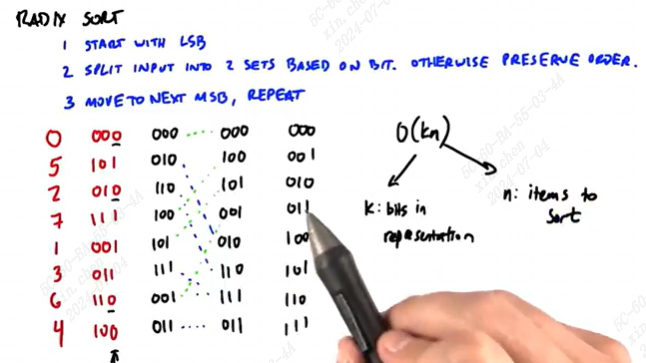 RADIX SORT
1 START WITH LSB
2 SPLIT INPUT INTO 2 SETS BASED ON BIT. OTHERWISE PRESERVE ORDER.
3 MOVE TO NEXT MSB, REPEAT
0 000 000 000 000
5 101 010 100 001
2 010 110 101 010
7 111 100 001 011
1 001 101 010 100
3 011 111 110 101
6 110 001 111 110
4 100 011 011 111
O(kn)
k: bits in
representation
n: items to
sort
xin.chen
2024-07-04